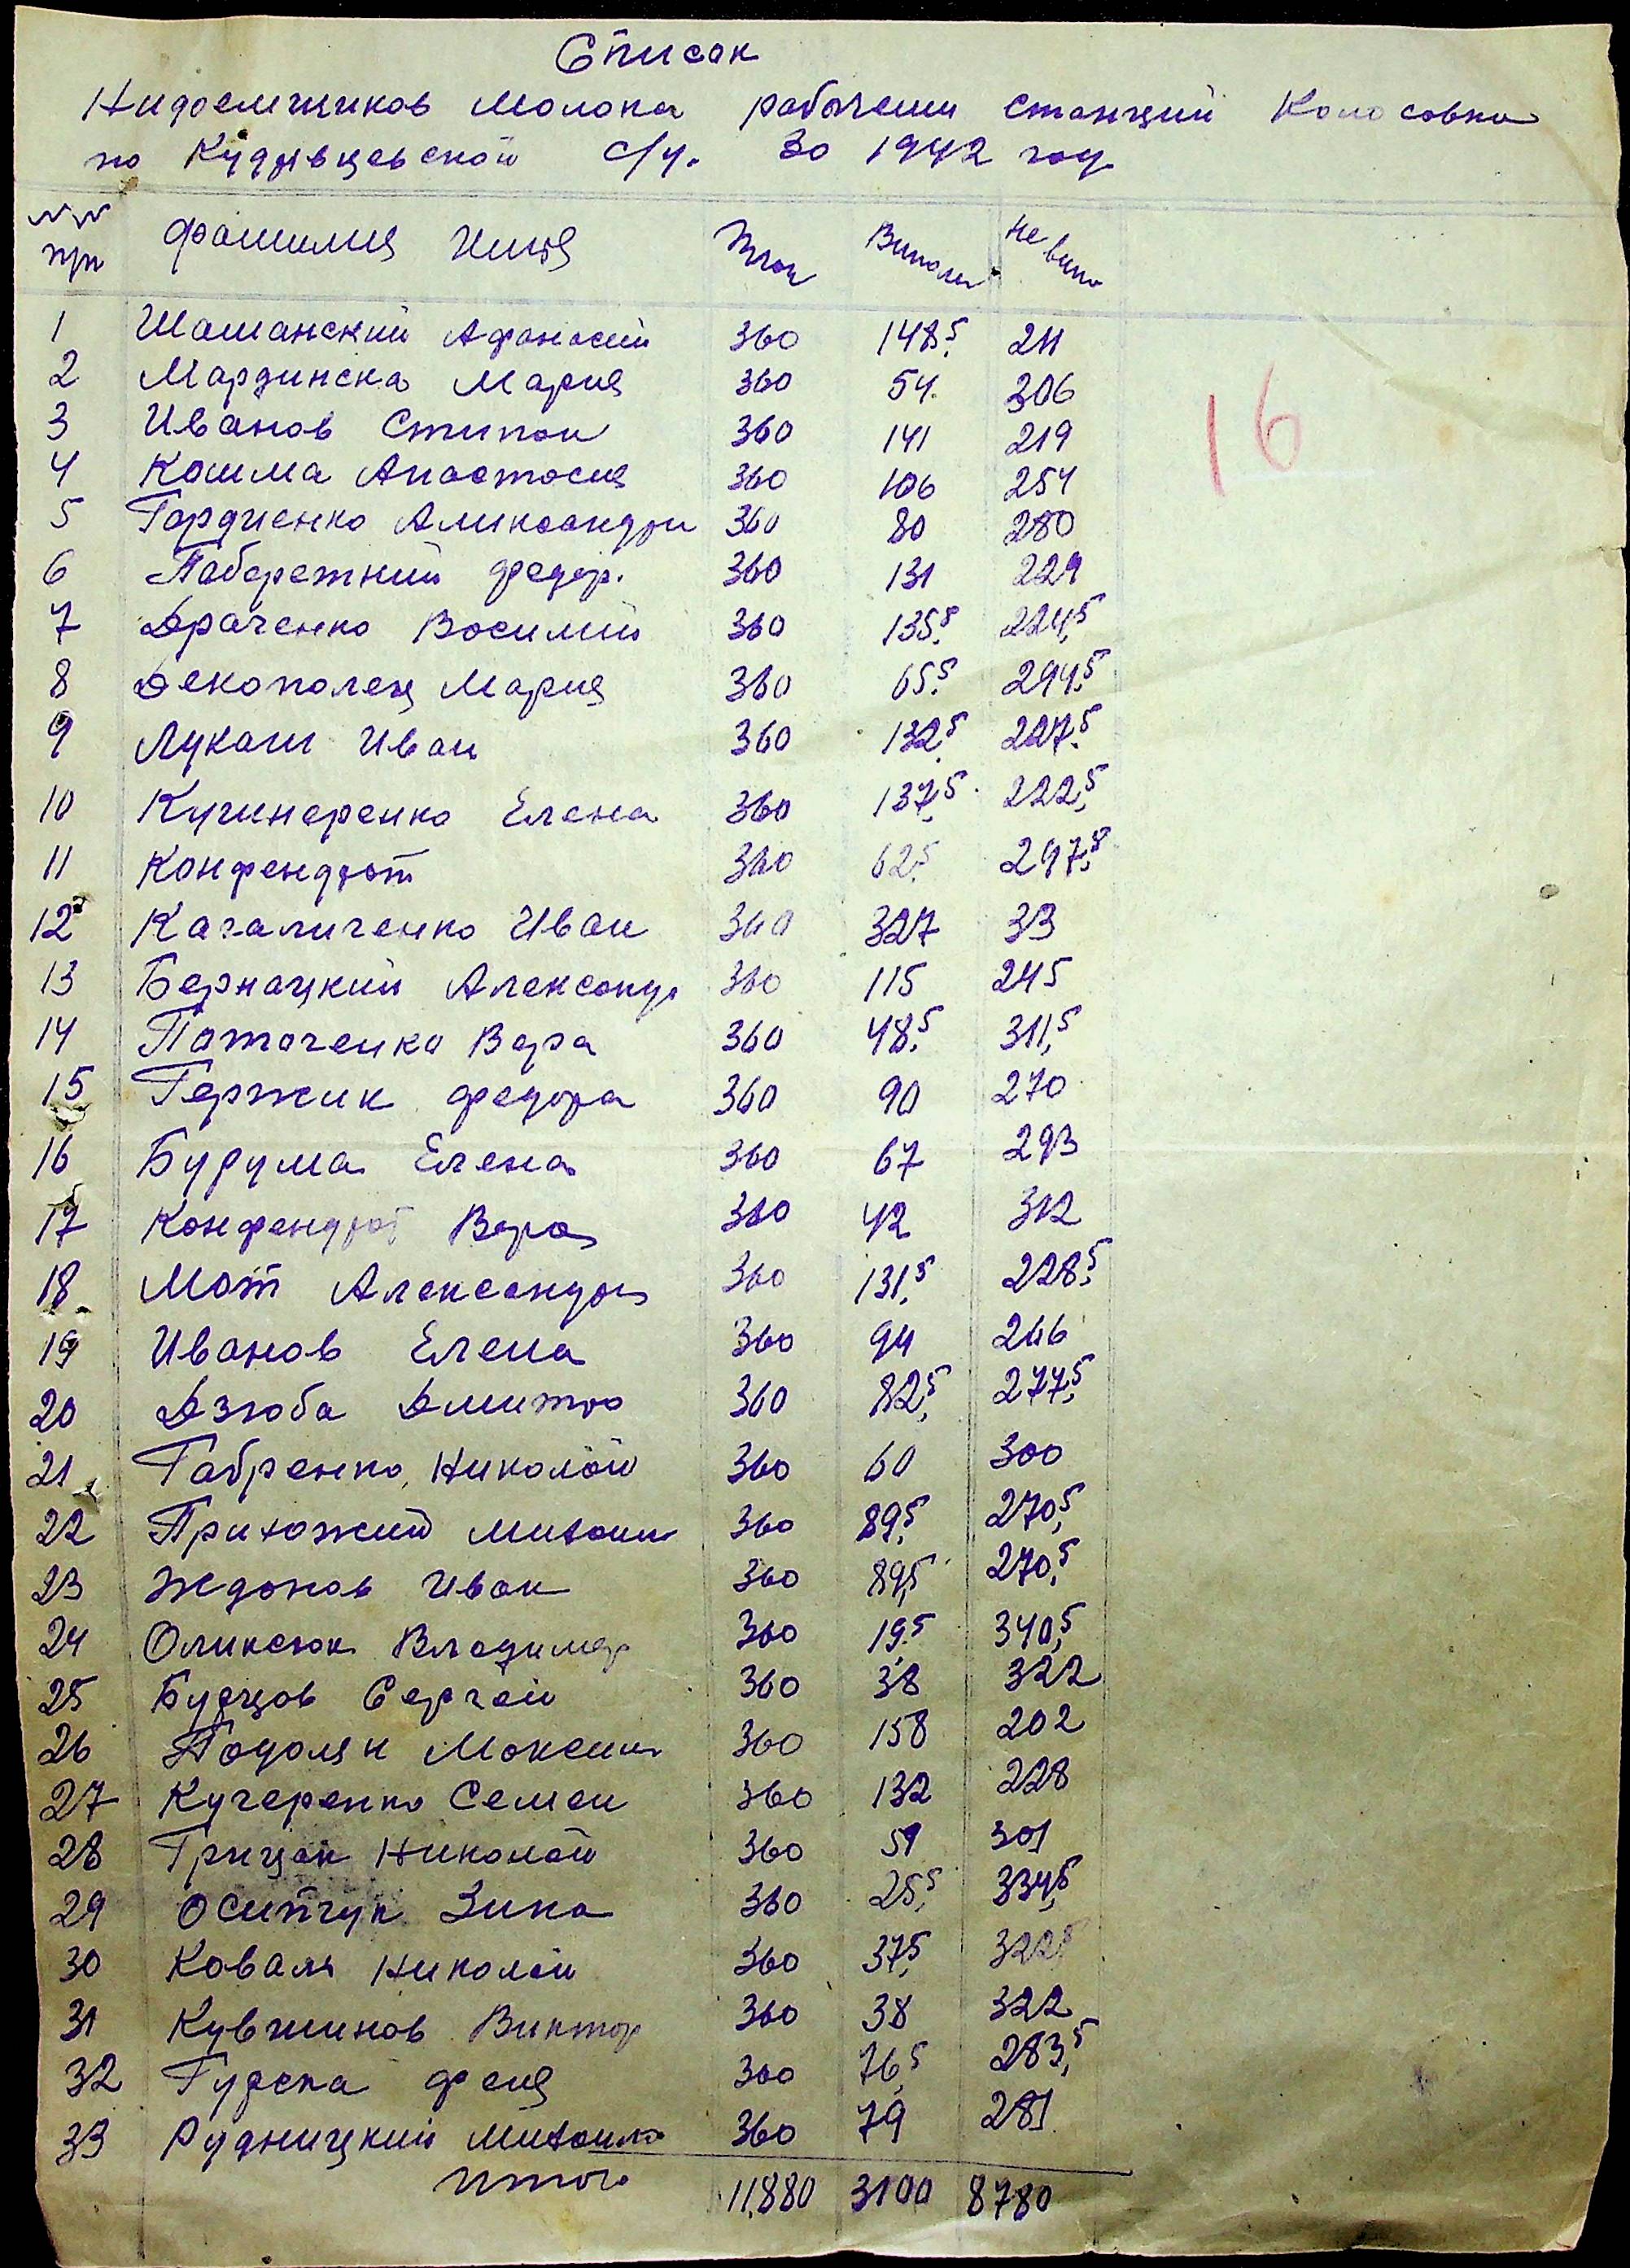 Список
Нидоемщиков Молока рабочеми станций Колосовка
по Кудрявцевской с/у. За 1942 год
№№ п/п Фамилия Имя План Виполн Не випо
1 Шаманский Афанасий 360 148,5 211
2 Мардинска Мария 360 54 306
3 Иванов Стипан 360 141 219
4 Кошма Анастосия 360 106 254
5 Гордиенко Аликсандри 360 80 280
6 Пабережний Федор. 360 131 229
7 Драченко Восилий 360 135,5 224,5
8 Декополец Мария 360 65,5 294,5
9 Лукаш Иван 360 132,5 227,5
10 Кучинеренко Елена 360 137,5 222,5
11 Конфендрот 360 62,5 297,5
12 Качаличенко Иван 360 327 33
13 Бернацкий Александр 360 115 245
14 Поточенко Вера 360 48,5 311,5
15 Гержик Федора 360 90 270
16 Бурума Елена 360 67 293
17 Конфендрот Вера 360 42 312
18 Мот Александра 360 131,5 228,5
19 Иванов Елена 360 94 266
20 Дзюба Дмитро 360 82,5 277,5
21 Габренко Николой 360 60 300
22 Прихожий Михаил 360 89,5 270,5
23 Ждонов Иван 360 89,5 270,5
24 Оликсюк Владимер 360 19,5 340,5
25 Бурцов Сергей 360 38 322
26 Подолян Моксим 360 158 202
27 Кучеренко Семен 360 132 228
28 Грицак Николой 360 59 301
29 Осипчук Зина 360 25,5 334,5
30 Коваль Николой 360 37,5 322,5
31 Кувшинов Виктор 360 38 322
32 Гурска Феня 360 76,5 283,5
33 Рудницкий Михаило 360 79 281
Итого 11,880 3100 8780
16